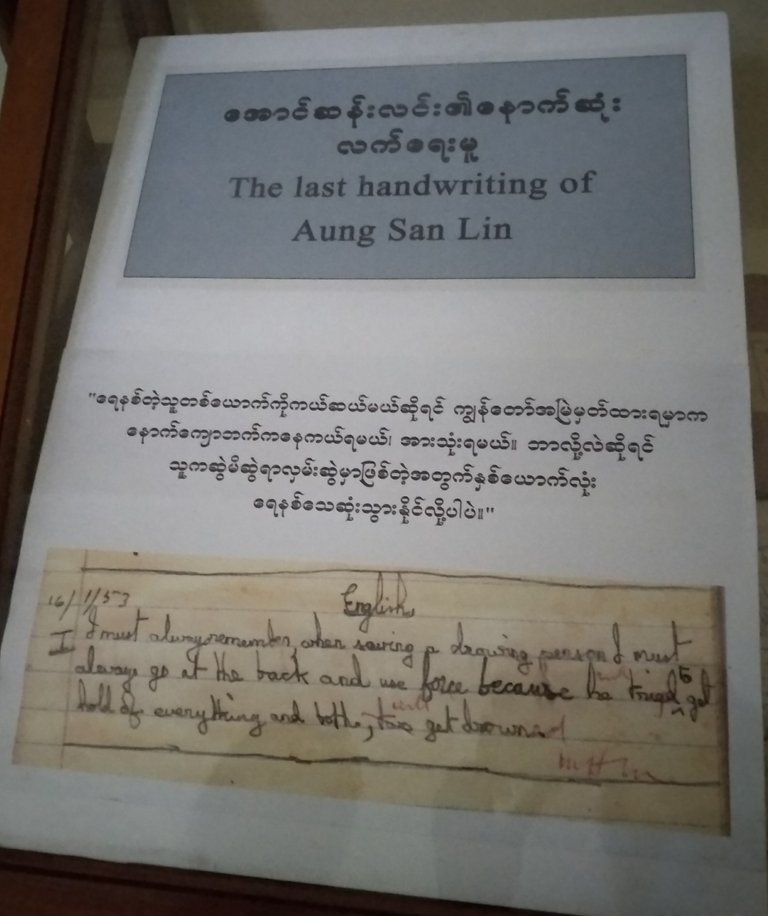 အောင်ဆန်းလင်း၏နောက်ဆုံး
လက်ရေးမူ
The last handwriting of
Aung San Lin
"ရေနစ်တဲ့သူတစ်ယောက်ကိုကယ်ဆယ်မယ်ဆိုရင် ကျွန်တော်အမြဲမှတ်ထားရမှာက
နောက်ကျောဘက်ကနေကယ်ရမယ်၊ အားသုံးရမယ်။ ဘာလို့လဲဆိုရင်
သူကဆွဲမိဆွဲရာလှမ်းဆွဲမှာဖြစ်တဲ့အတွက်နှစ်ယောက်လုံး
ရေနစ်သေဆုံးသွားနိုင်လို့ပါပဲ။"
16/1/53 English
I I must always remember, when saving a drawing person I must
always go at the back and use force because he to get
hold of everything and both, will get drowned